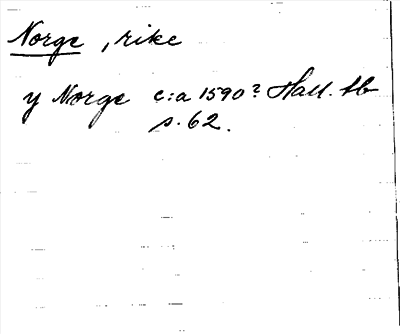 Norge, rike
y Norge c:a 1590? Hall. tb
s. 62.